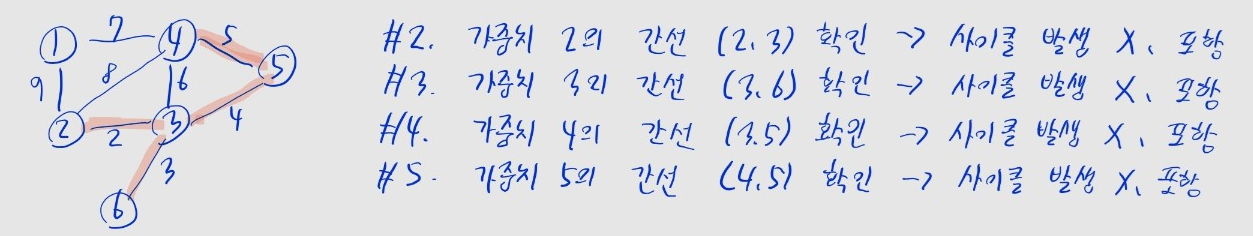 1 7 4 5 5
9 8 6
2 2 3 4
3
6
#2. 가중치 2의 간선 (2,3) 확인 -> 사이클 발생 X, 포함
#3. 가중치 3의 간선 (3,6) 확인 -> 사이클 발생 X, 포함
#4. 가중치 4의 간선 (3,5) 확인 -> 사이클 발생 X, 포함
#5. 가중치 5의 간선 (4,5) 확인 -> 사이클 발생 X, 포함